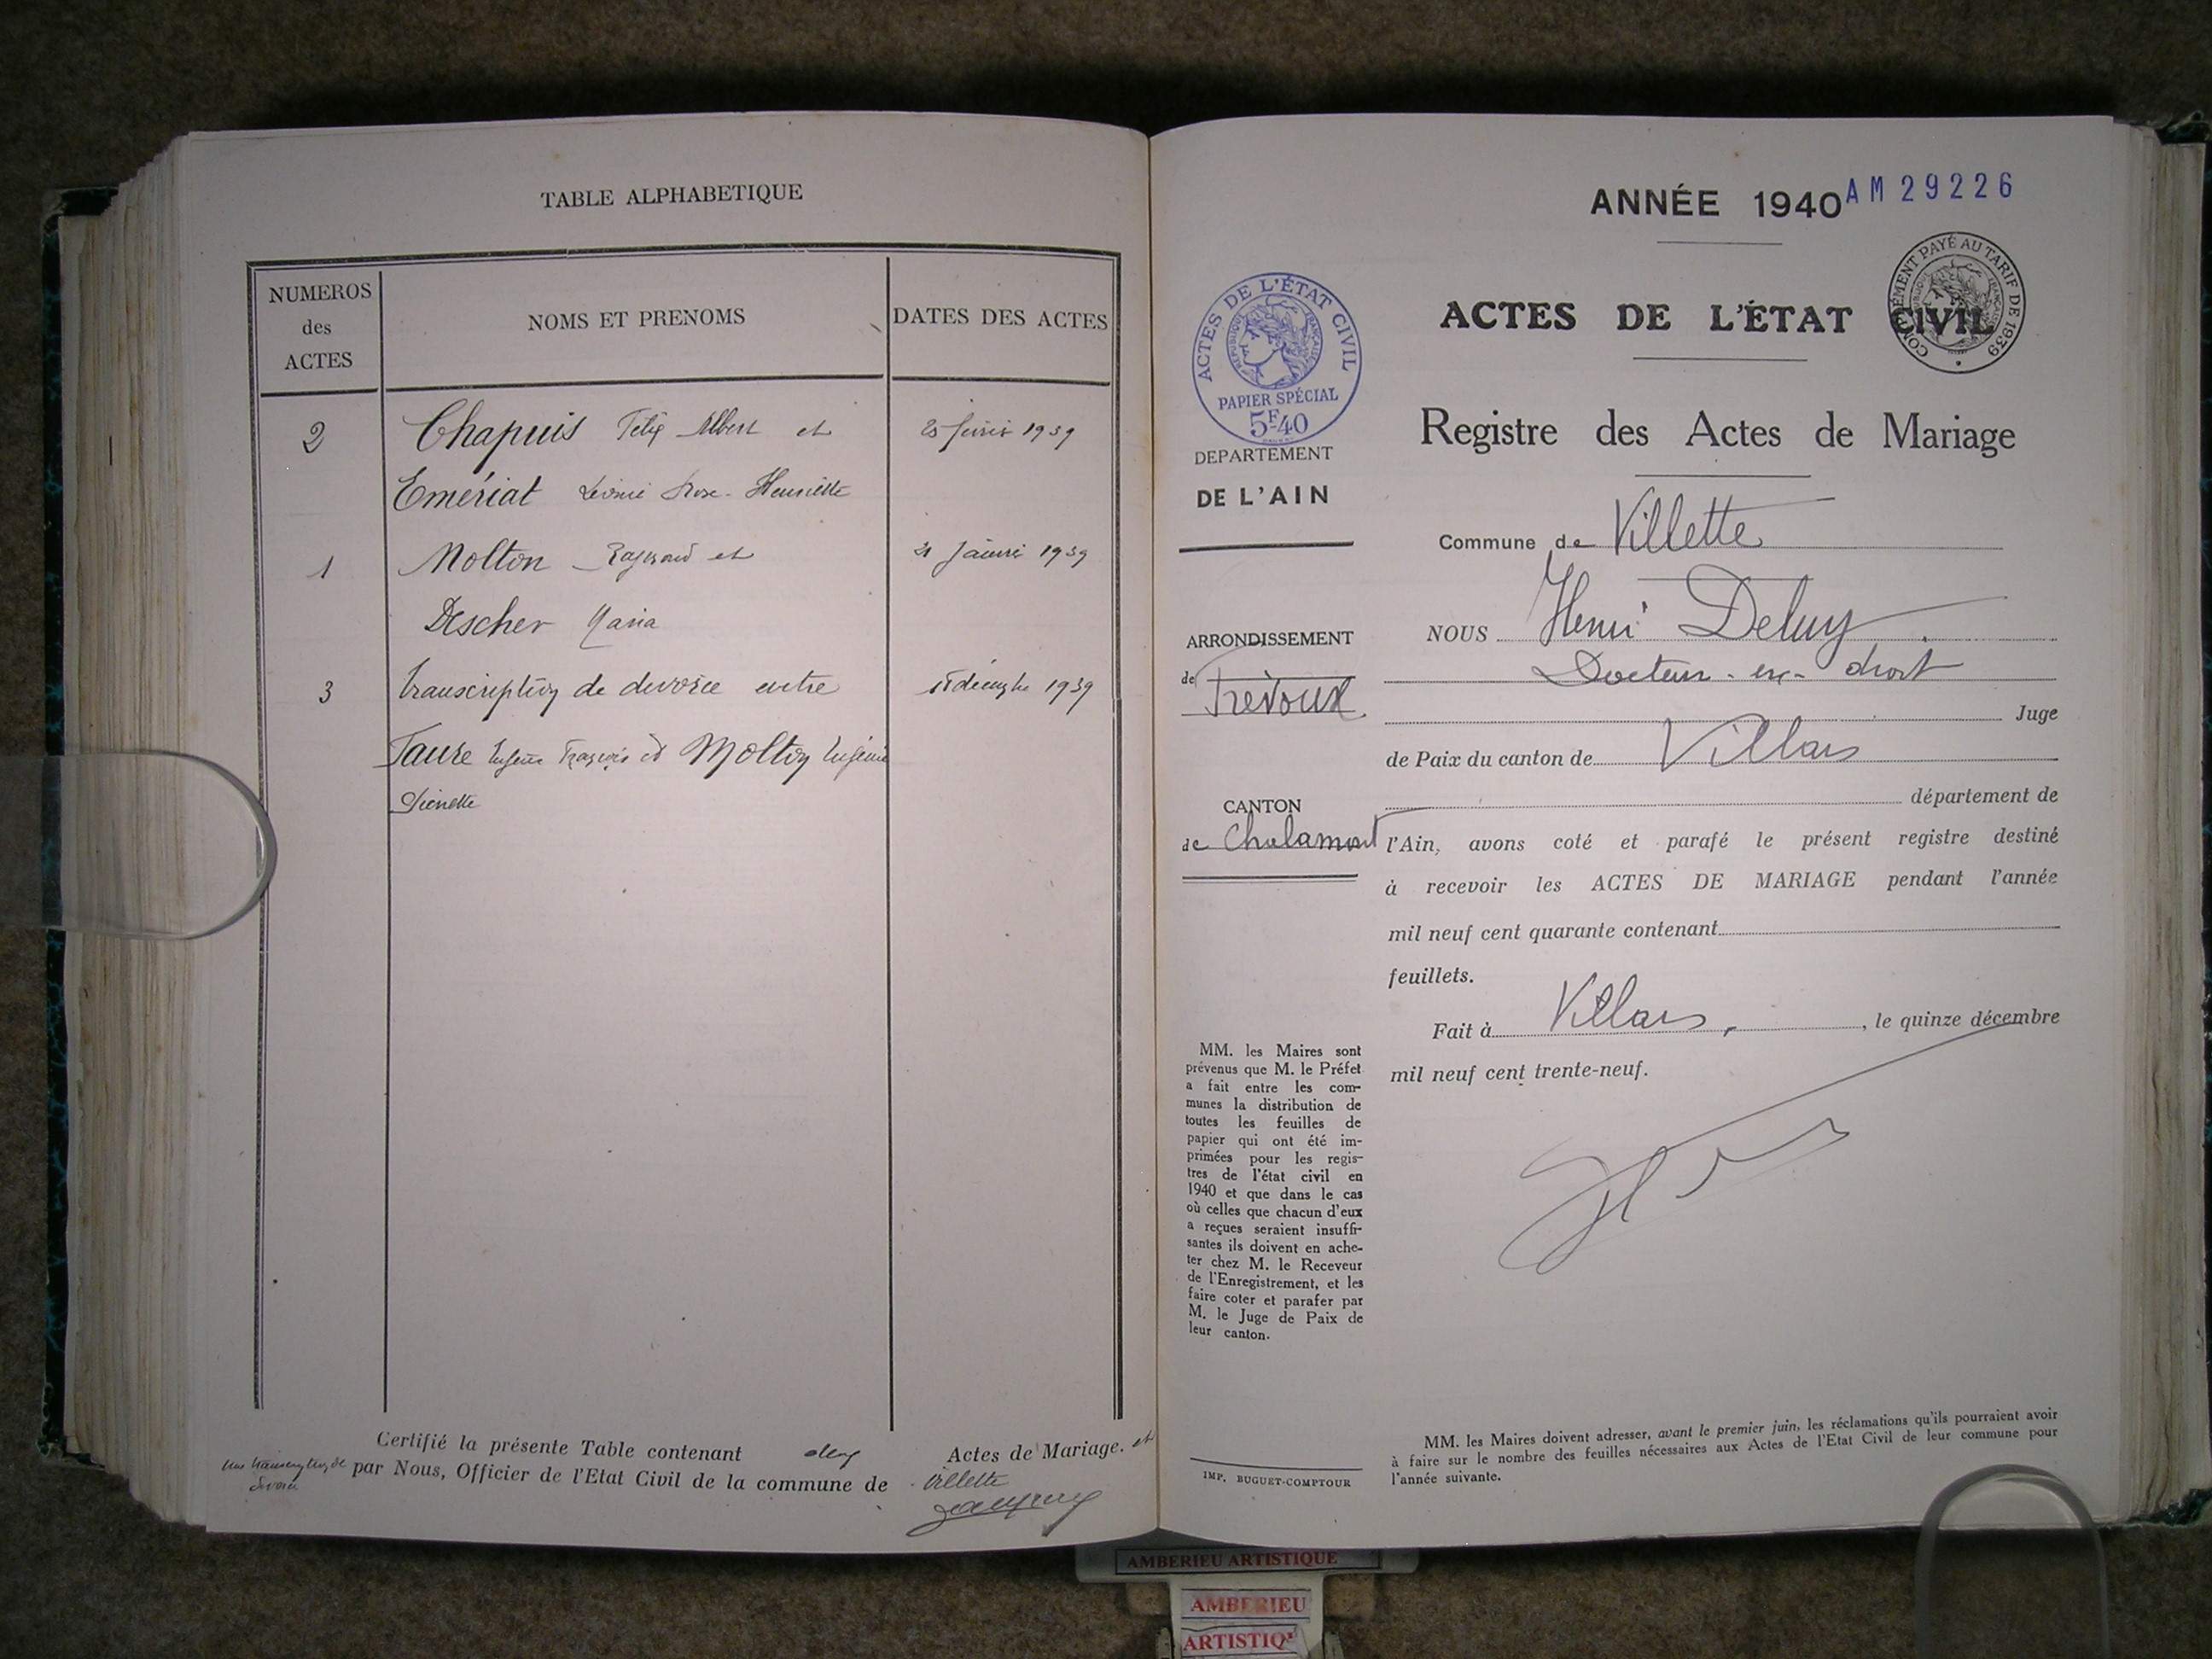 TABLE ALPHABETIQUE
NUMEROS
des
ACTES
NOMS ET PRENOMS
DATES DES ACTES
2
Chapuis Félix Albert et
février 1939
Emériat Léonie Rose-Henriette
1
Molton Raymond et
Janvier 1939
Descher Maria
3
transcription de divorce entre
décembre 1939
Faure Eugène François et Molton Eugénie
Certifié la présente Table contenant deux Actes de Mariage. et
une transcription de
divorce
par Nous, Officier de l'Etat Civil de la commune de Villette
ANNÉE 1940
AM 29226
COMPLÉMENT PAYÉ AU TARIF DE 1939
ACTES DE L'ÉTAT CIVIL
RÉPUBLIQUE FRANÇAISE
PAPIER SPÉCIAL
5F40
ACTES DE L'ÉTAT CIVIL
Registre des Actes de Mariage
DEPARTEMENT
DE L'AIN
Commune de Villette
ARRONDISSEMENT
de Trévoux
NOUS Henri Deluy
Docteur-en-droit
Juge
de Paix du canton de Villars
département de
CANTON
de Chalamont
l'Ain, avons coté et parafé le présent registre destiné
à recevoir les ACTES DE MARIAGE pendant l'année
mil neuf cent quarante contenant
feuillets.
Fait à Villars, , le quinze décembre
mil neuf cent trente-neuf.
MM. les Maires sont
prévenus que M. le Préfet
a fait entre les com-
munes la distribution de
toutes les feuilles de
papier qui ont été im-
primées pour les regis-
tres de l'état civil en
1940 et que dans le cas
où celles que chacun d'eux
a reçues seraient insuffi-
santes ils doivent en ache-
ter chez M. le Receveur
de l'Enregistrement, et les
faire coter et parafer par
M. le Juge de Paix de
leur canton.
IMP. BUGUET-COMPTOUR
MM. les Maires doivent adresser, avant le premier juin, les réclamations qu'ils pourraient avoir
à faire sur le nombre des feuilles nécessaires aux Actes de l'Etat Civil de leur commune pour
l'année suivante.
AMBERIEU ARTISTIQUE
AMBERIEU
ARTISTIQ